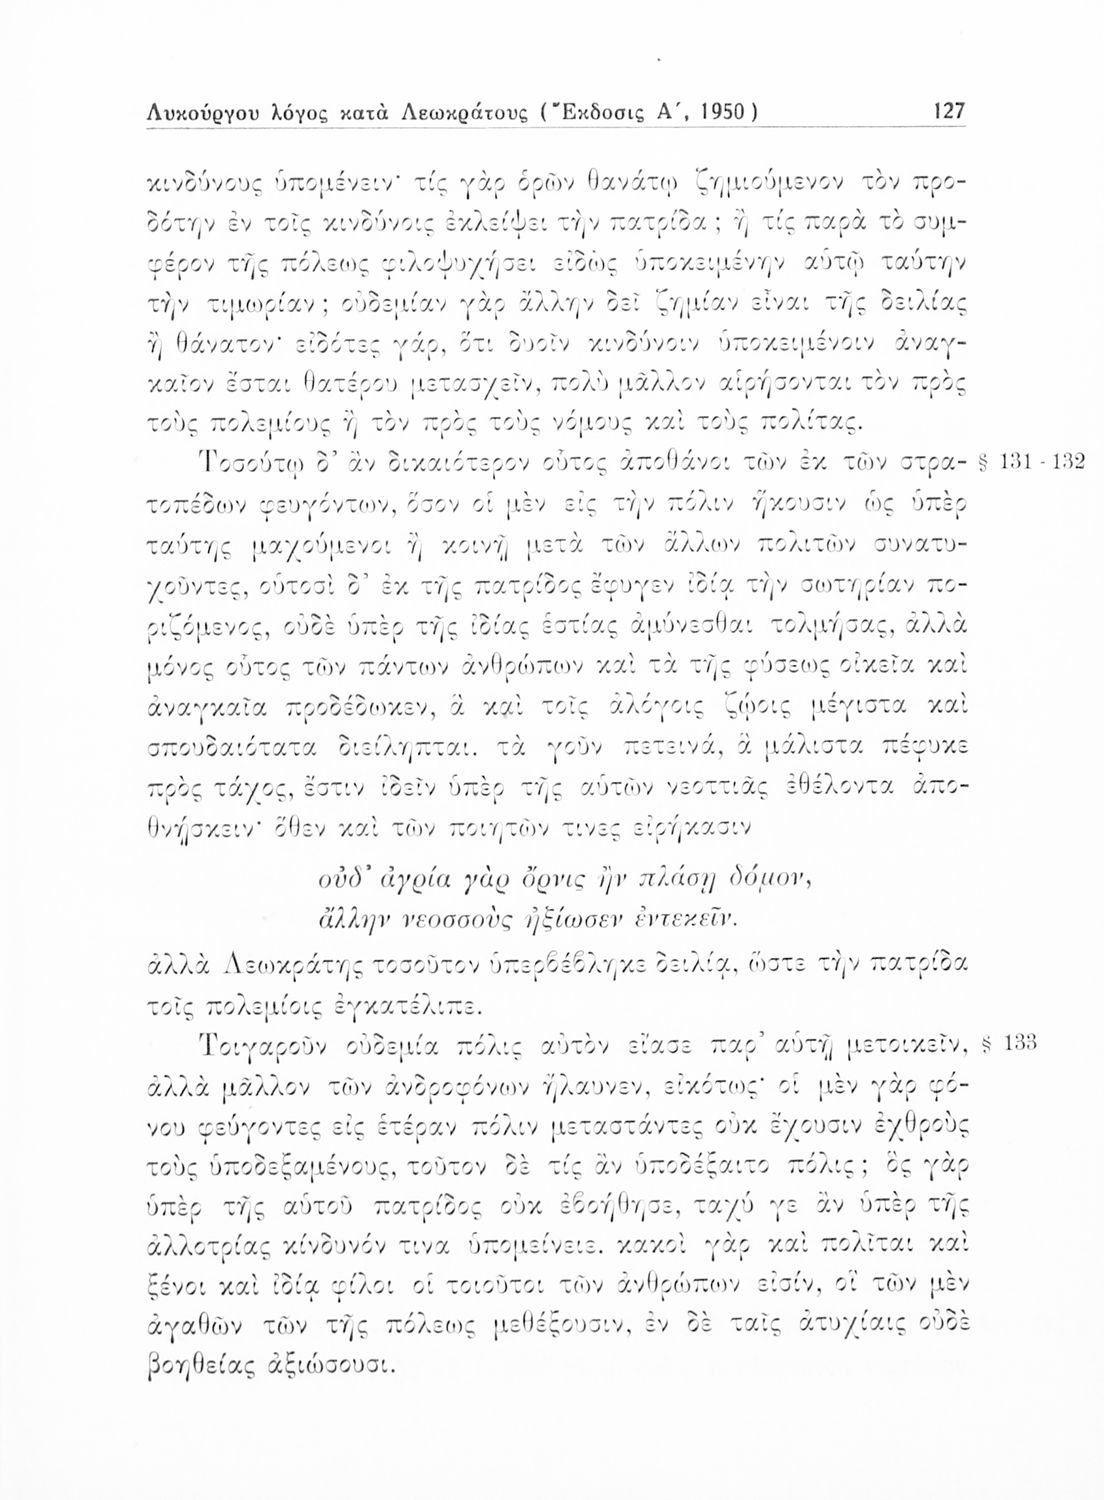 Λυκούργου λόγος κατὰ Λεωκράτους (Ἔκδοσις Α΄, 1950) 127
κινδύνους ὑπομένειν· τίς γὰρ ὁρῶν θανάτῳ ζημιούμενον τὸν προ-
δότην ἐν τοῖς κινδύνοις ἐκλείψει τὴν πατρίδα; ἢ τίς παρὰ τὸ συμ-
φέρον τῆς πόλεως φιλοψυχήσει εἰδὼς ὑποκειμένην αὑτῷ ταύτην
τὴν τιμωρίαν; οὐδεμίαν γὰρ ἄλλην δεῖ ζημίαν εἶναι τῆς δειλίας
ἢ θάνατον· εἰδότες γάρ, ὅτι δυοῖν κινδύνοιν ὑποκειμένοιν ἀναγ-
καῖον ἔσται θατέρου μετασχεῖν, πολὺ μᾶλλον αἱρήσονται τὸν πρὸς
τοὺς πολεμίους ἢ τὸν πρὸς τοὺς νόμους καὶ τοὺς πολίτας.
Τοσούτῳ δ’ ἂν δικαιότερον οὗτος ἀποθάνοι τῶν ἐκ τῶν στρα- § 131 - 132
τοπέδων φευγόντων, ὅσον οἱ μὲν εἰς τὴν πόλιν ἥκουσιν ὡς ὑπὲρ
ταύτης μαχούμενοι ἢ κοινῇ μετὰ τῶν ἄλλων πολιτῶν συνατυ-
χοῦντες, οὑτοσὶ δ’ ἐκ τῆς πατρίδος ἔφυγεν ἰδίᾳ τὴν σωτηρίαν πο-
ριζόμενος, οὐδὲ ὑπὲρ τῆς ἰδίας ἑστίας ἀμύνεσθαι τολμήσας, ἀλλὰ
μόνος οὗτος τῶν πάντων ἀνθρώπων καὶ τὰ τῆς φύσεως οἰκεῖα καὶ
ἀναγκαῖα προδέδωκεν, ἃ καὶ τοῖς ἀλόγοις ζῴοις μέγιστα καὶ
σπουδαιότατα διείληπται. τὰ γοῦν πετεινά, ἃ μάλιστα πέφυκε
πρὸς τάχος, ἔστιν ἰδεῖν ὑπὲρ τῆς αὑτῶν νεοττιᾶς ἐθέλοντα ἀπο-
θνῄσκειν· ὅθεν καὶ τῶν ποιητῶν τινες εἰρήκασιν
οὐδ’ ἀγρία γὰρ ὄρνις ἢν πλάσῃ δόμον,
ἄλλην νεοσσοὺς ἠξίωσεν ἐντεκεῖν.
ἀλλὰ Λεωκράτης τοσοῦτον ὑπερβέβληκε δειλίᾳ, ὥστε τὴν πατρίδα
τοῖς πολεμίοις ἐγκατέλιπε.
Τοιγαροῦν οὐδεμία πόλις αὐτὸν εἴασε παρ’ αὑτῇ μετοικεῖν, § 133
ἀλλὰ μᾶλλον τῶν ἀνδροφόνων ἤλαυνεν, εἰκότως· οἱ μὲν γὰρ φό-
νου φεύγοντες εἰς ἑτέραν πόλιν μεταστάντες οὐκ ἔχουσιν ἐχθροὺς
τοὺς ὑποδεξαμένους, τοῦτον δὲ τίς ἂν ὑποδέξαιτο πόλις; ὃς γὰρ
ὑπὲρ τῆς αὑτοῦ πατρίδος οὐκ ἐβοήθησε, ταχύ γε ἂν ὑπὲρ τῆς
ἀλλοτρίας κίνδυνόν τινα ὑπομείνειε. κακοὶ γὰρ καὶ πολῖται καὶ
ξένοι καὶ ἰδίᾳ φίλοι οἱ τοιοῦτοι τῶν ἀνθρώπων εἰσίν, οἳ τῶν μὲν
ἀγαθῶν τῶν τῆς πόλεως μεθέξουσιν, ἐν δὲ ταῖς ἀτυχίαις οὐδὲ
βοηθείας ἀξιώσουσι.